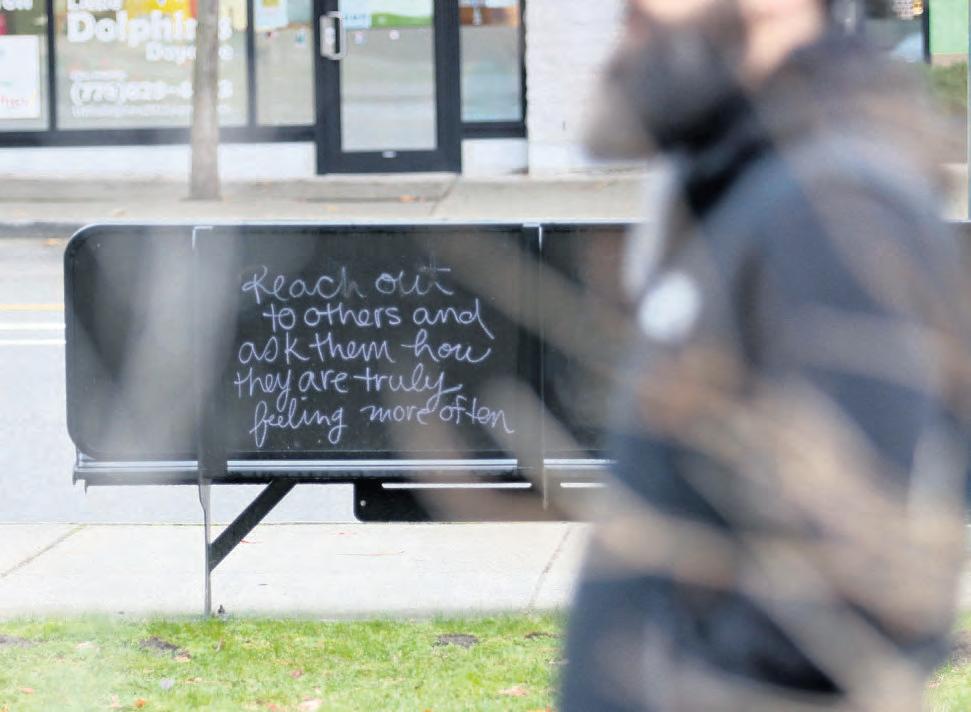 Dolphins
Reach out
to others and
ask them how
they are truly
feeling more often